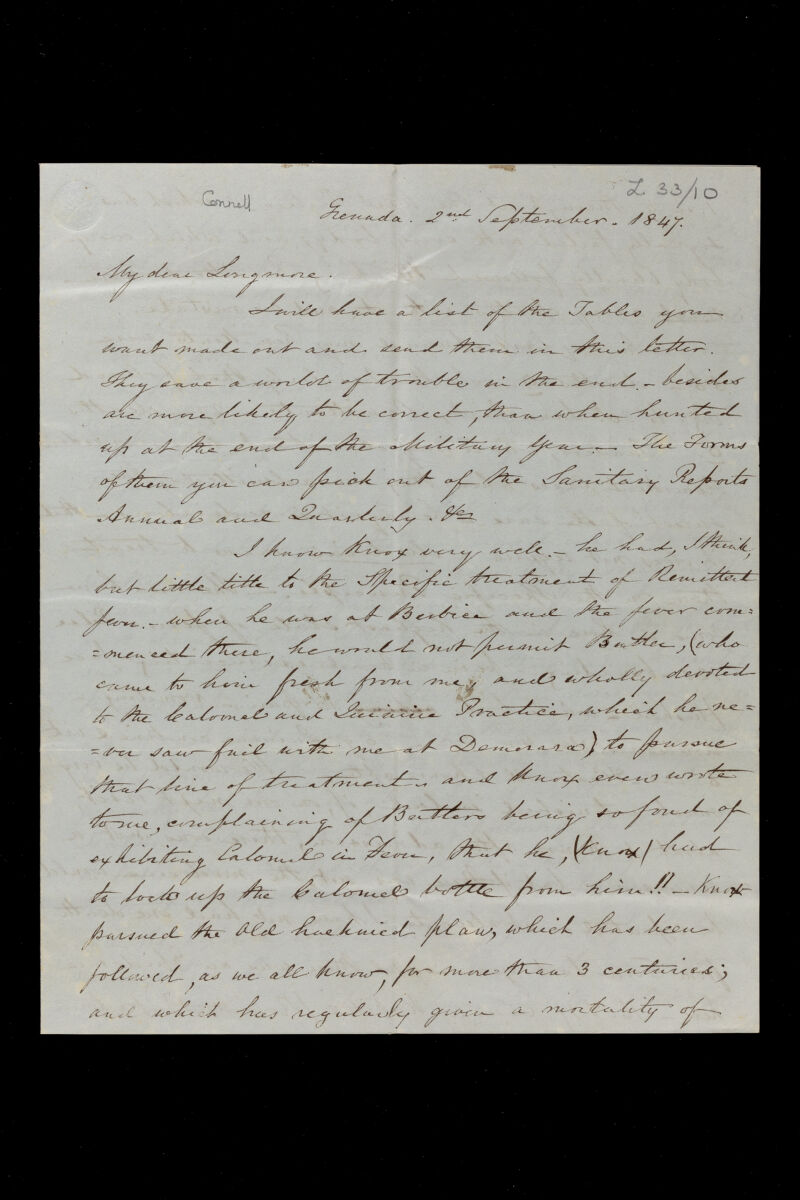 Connell
L 33/10
Grenada. 2nd September. 1847.
My dear Longmore.
I will have a list of the Tables you
want made out and send them in this letter.
They save a world of trouble in the end. - besides
are more likely to be correct, than when hunted
up at the end of the Military Year. - The Forms
of them you can pick out of the Sanitary Reports
Annual and Quarterly. &c
I know Knox very well. - he had, I think,
but little title to the Specific treatment of Remittent
fever. - when he was at Berbice and the fever com=
=menced there, he would not permit Butler, (who
came to him fresh from me, and wholly devoted
to the Calomel and Quinine Practice, which he ne=
=ver saw fail with me at Demerara) to pursue
that line of treatment and Knox even wrote
to me, complaining of Butlers being so fond of
exhibiting Calomel in Fever, that he, (Knox) had
to lock up the Calomel bottle from him!! - Knox
pursued the old hacknied plan, which has been
followed, as we all know, for more than 3 centuries;
and which has regularly given a mortality of